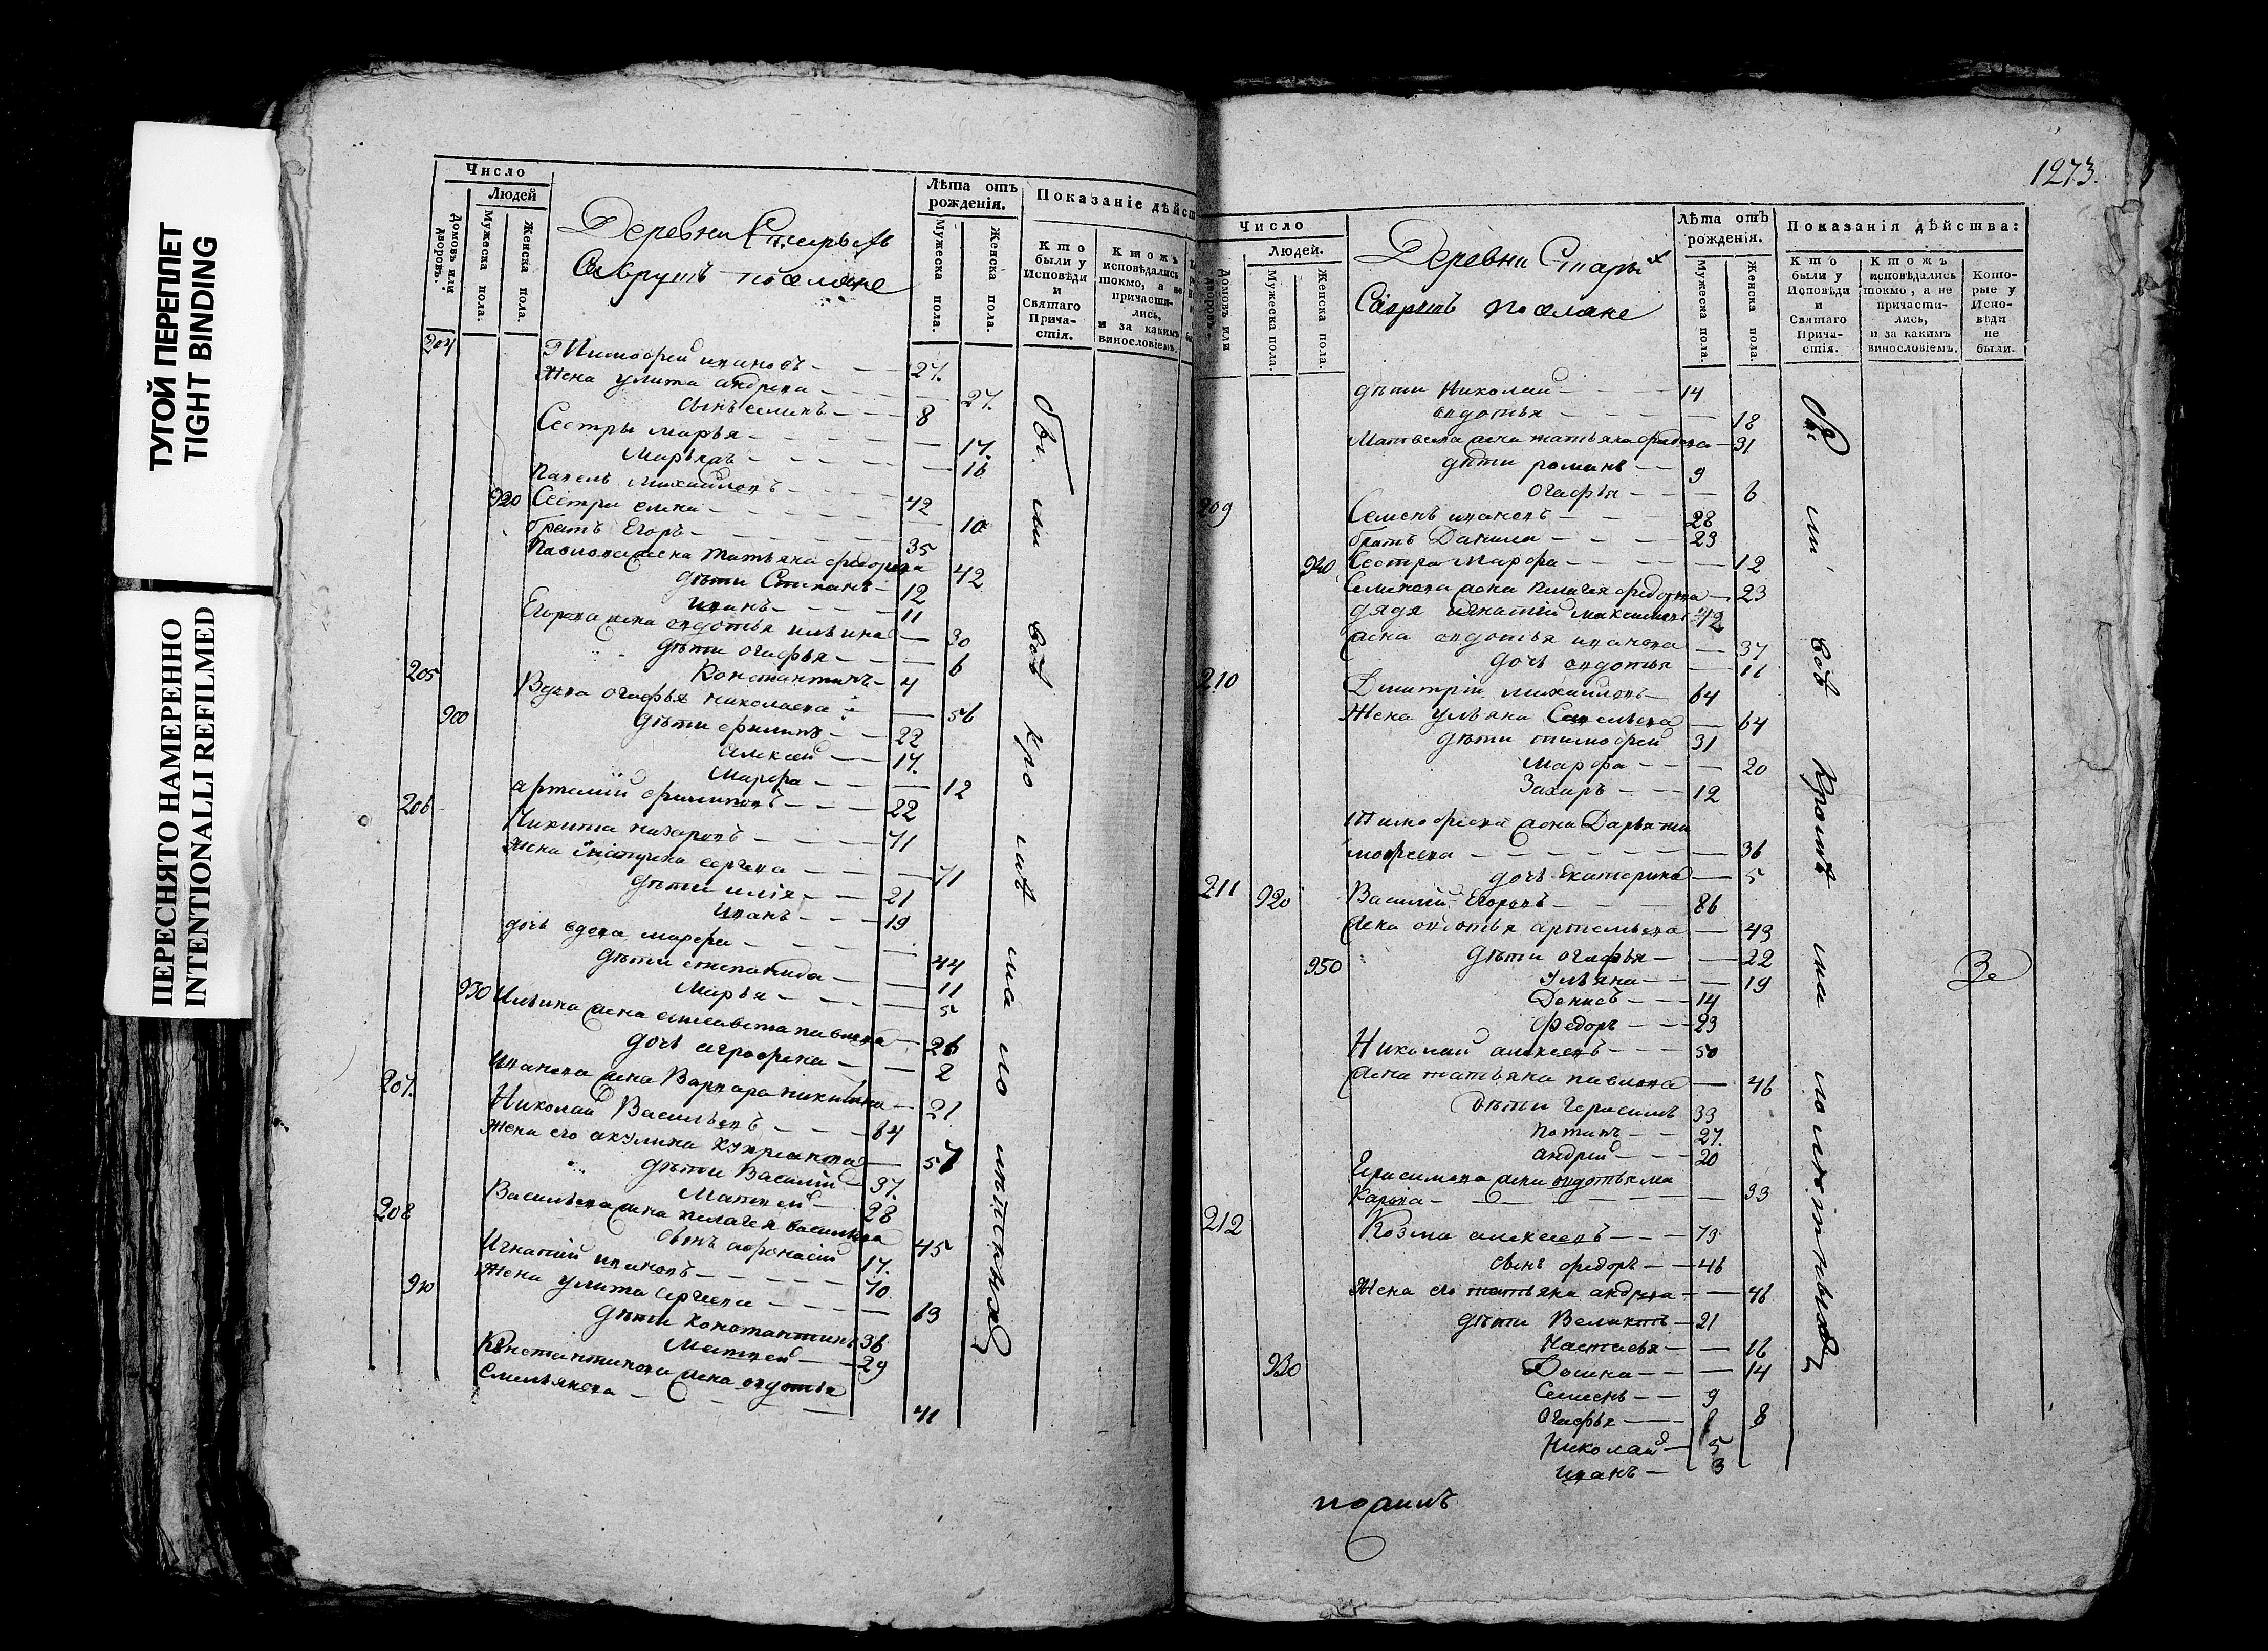 ТУГОЙ ПЕРЕПЛЕТ
TIGHT BINDING
ПЕРЕСНЯТО НАМЕРЕННО
INTENTIONALLI REFILMED
Число
Людей
Домовъ или дворовъ.
Мужеска пола.
Женска пола.
Деревни Старыхъ
поселяне
Лѣта отъ рожденія.
Мужеска пола.
Женска пола.
Показаніе дѣйст
Кто были у Исповѣди и Святаго Прича-стія.
Ктожъ исповѣдались токмо, а не причасти-лись, и за какимъ винословіемъ.
204 Тимофей ивановъ 27.
Жена улита андреева 27.
сынъ семинъ 8
Сестры марья 17.
Марьяа 16
павелъ михайловъ 42
920 Сестра елена 10
братъ Егоръ 35
павлова жена татьяна федорова 42
дѣти Степанъ 12
иванъ 11
Егорова жена овдотья ильина 30
дѣти огафья 6
Константинъ 4
205 Вдова огафья николаева 56
900 дѣти филипъ 22
алексей 17.
Марфа 12
артемий филиповъ 22
206 Никита назаровъ 71
Жена матрена сергеева 71
дѣти илия 21
иванъ 19
дочь вдова марфа 44
дѣти степанида 11
Марья 5
930 Ильина жена елисавета павлова 26
дочь аграфена 2
иванова жена Варвара никитина 21
207. Николай Васильевъ 64
Жена его акулина куприанова 57
дѣти Василий 37.
Матвей 28
Васильева жена пелагея васильева 45
сынъ афонасий 17.
208 Игнатий ивановъ 70
910 Жена улита сергеева 63
дѣти константинъ 36
Матвей 29
Константинова жена овдотья
Емельянова 41
были
всѣ
кро
мѣ
ма
ло
лѣтныхъ
1273.
Число
Людей.
Домовъ или дворовъ.
Мужеска пола.
Женска пола.
Деревни Старыхъ
поселяне
Лѣта отъ рожденія.
Мужеска пола.
Женска пола.
Показанія дѣйства:
Кто были у Исповѣди и Святаго Прича-стія.
Ктожъ исповѣдались токмо, а не причасти-лись, и за какимъ винословіемъ.
Кото-рые у Испо-вѣди не были.
дѣти Николай 14
овдотья 18
Матвеева жена татьяна федорова 31
дѣти романъ 9
Огафья 6
209 Семенъ ивановъ 28
братъ Данила 23
940 Сестра Марфа 12
Семенова жена пелагея федорова 23
дядя игнатий максимовъ 42
жена овдотья иванова 37
дочь овдотья 11
210 Дмитрий михайловъ 64
Жена ульяна Савельева 64
дѣти тимофей 31
Марфа 20
Захаръ 12
Тимофеева жена Дарья ти
мофеева 36
дочь Екатерина 5
211 920 Василий Егоровъ 86
жена овдотья артемьева 43
дѣти огафья 22
950 Ульяна 19
Денисъ 14
федоръ 23
Николай алексеевъ 50
жена татьяна павлова 46
дѣти Герасимъ 33
потапъ 27.
андрей 20
Герасимова жена овдотья ма
карова 33
212 Козма алексеевъ 73
сынъ федоръ 46
Жена его татьяна андреева 46
дѣти 21
Настасья 16
930 Домна 14
Семенъ 9
Огафья 8
Николай 5
иванъ 3
были
всѣ
кромѣ
ма
лолѣтныхъ